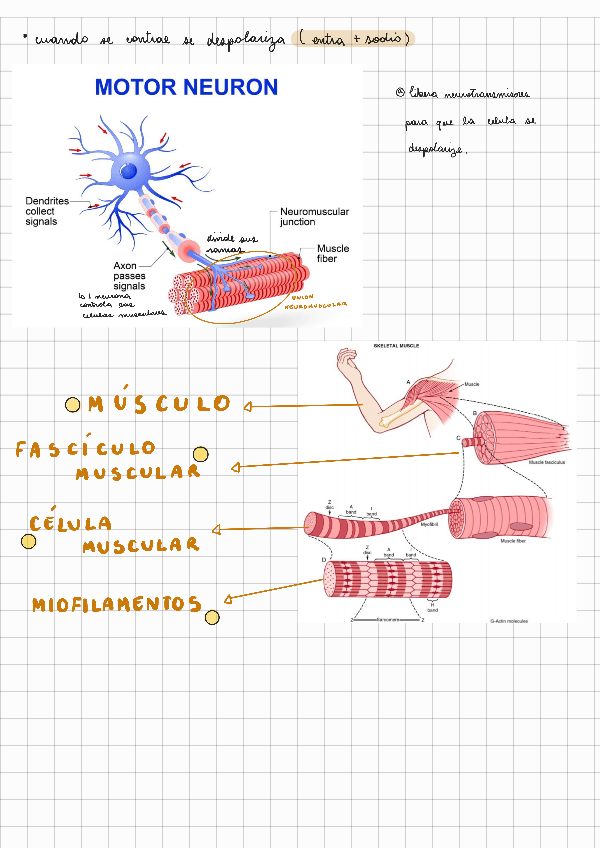 * cuando se contrae se despolariza ( entra + sodio )
MOTOR NEURON
Libera neurotransmisores
para que la celula se
despolarize.
Dendrites
collect
signals
Neuromuscular
junction
divide sus
ramas
Muscle
fiber
Axon
passes
signals
la neurona
controla sus
celulas musculares
UNION
NEUROMUSCULAR
SKELETAL MUSCLE
A
Muscle
MÚSCULO
B
C
FASCÍCULO
MUSCULAR
Muscle fasciculus
Z
disc
A
band
I
band
Myofibril
CÉLULA
MUSCULAR
Muscle fiber
D
Z
disc
A
band
I
band
MIOFILAMENTOS
H
band
Z
Sarcomere
Z
G-Actin molecules